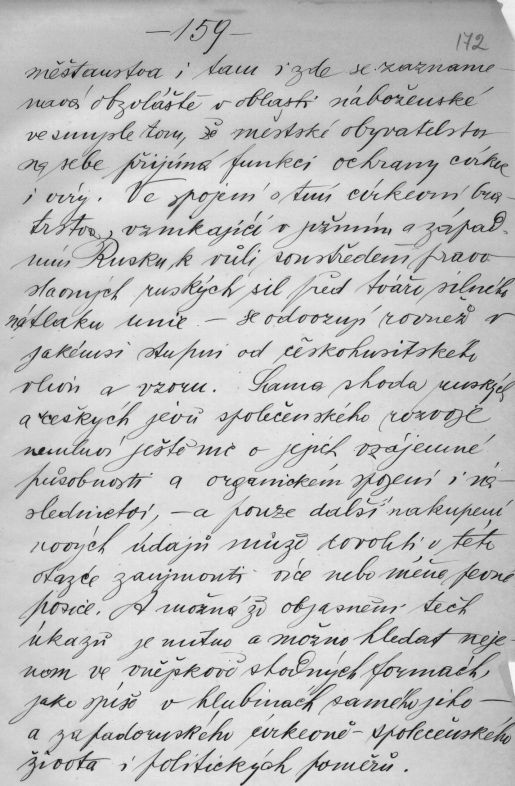 —159—
172
měšťanstva i tam i zde se zazname-
nává obzvláště v oblasti náboženské
ve smyslu tom, že městské obyvatelstvo
na sebe přijímá funkci ochrany církve
i víry. Ve spojení s tím církevní bra-
trstva, vznikající v jižním a západ-
ním Rusku, k vůli soustředění pravo-
slavných ruských sil před tváří silného
nátlaku unie — se odvozují rovněž v
jakémsi stupni od českohusitského
vlivu a vzoru. Sama shoda ruských
a českých jevů společenského rozvoje
nemluví ještě nic o jejich vzájemné
působnosti a organickém spojení i ná-
slednictví, — a pouze další nakupení
nových údajů může dovoliti v této
otázce zaujmouti více nebo méně pevné
posice. A možná že objasnění těch
úkazů je nutno a možno hledat neje-
nom ve vnějškově shodných formách,
jako spíše v hlubinách samého jiho—
a západoruského církevně-společenského
života i politických poměrů.